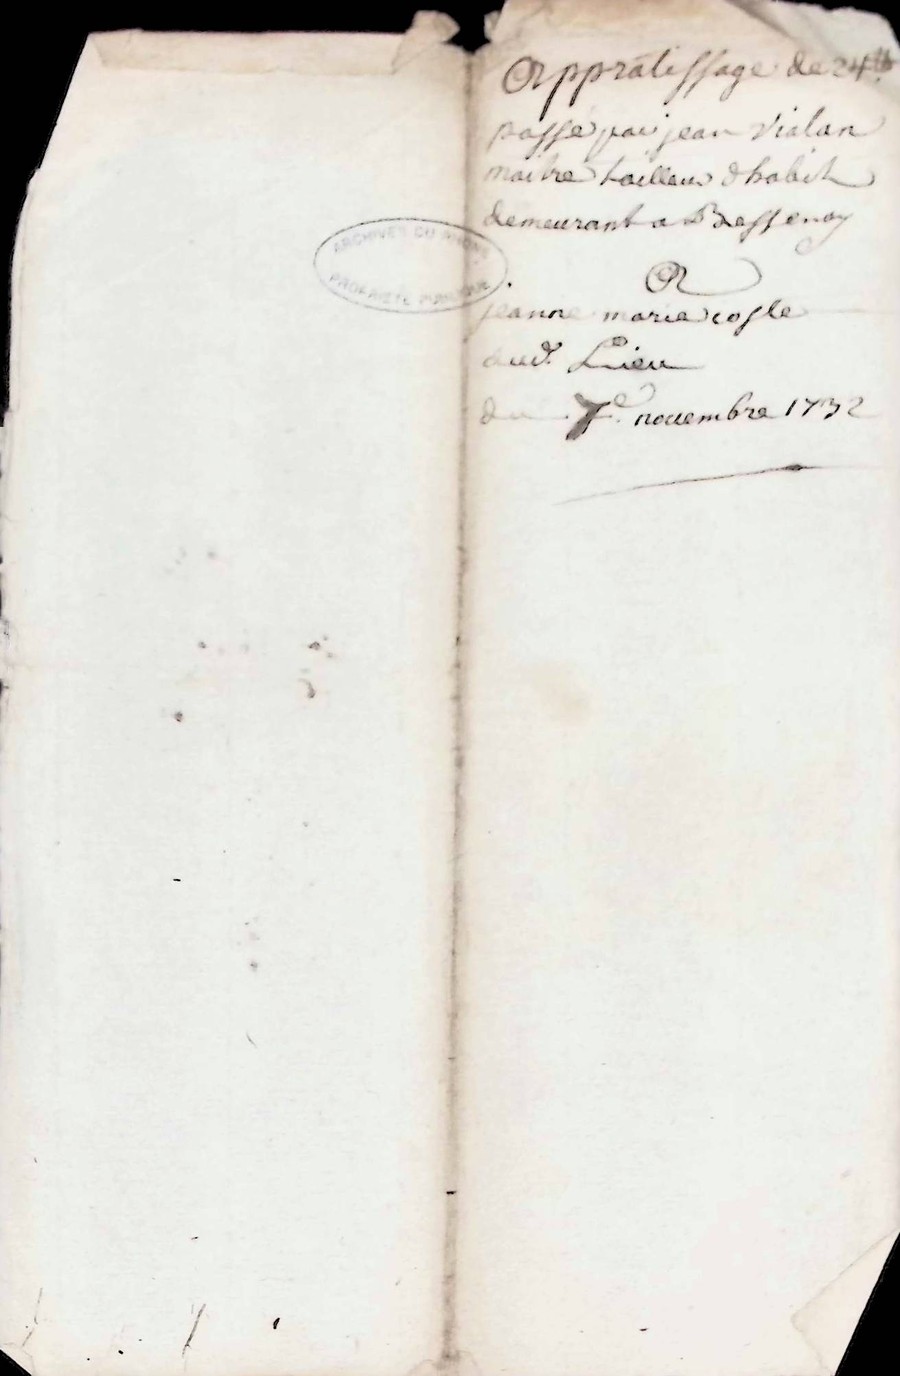 Apprãtissage de 24tt
passé par jean Vialan
maitre tailleur d'habit
demeurant a Bessenay
A
jeanne marie coste
dud. Lieu
du 7e. novembre 1732
ARCHIVES DU RHONE
PROPRIETE PUBLIQUE